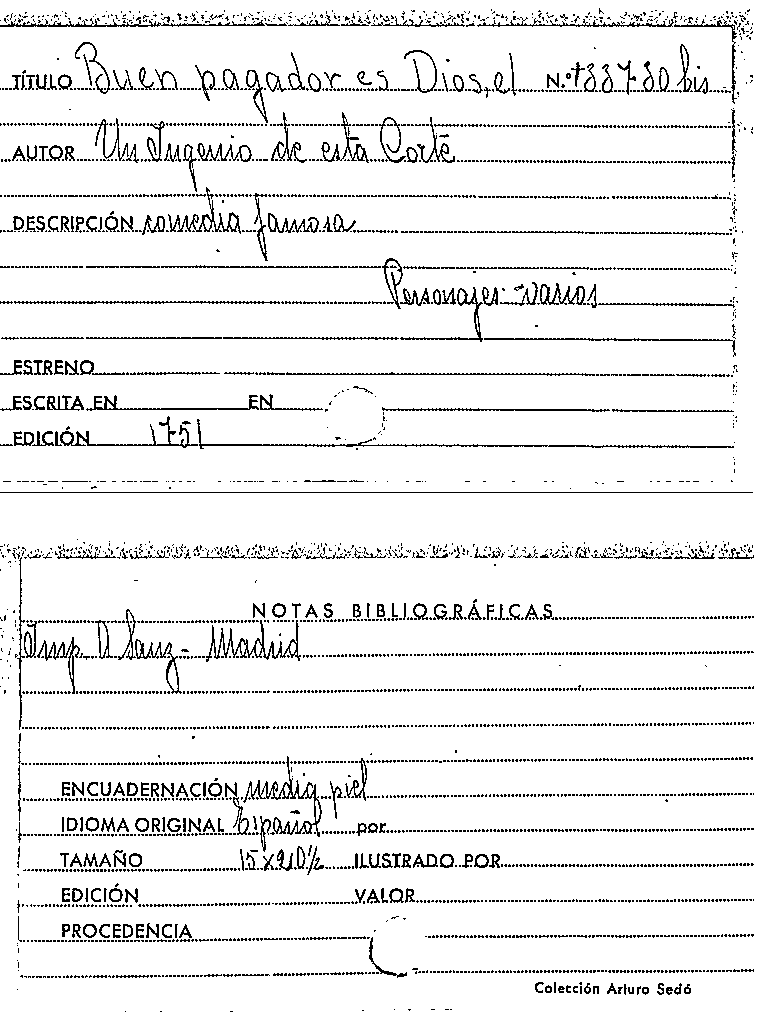 TÍTULO Buen pagador es Dios, el N.º 33730 bis
AUTOR Un Ingenio de esta Corte
DESCRIPCIÓN comedia famosa
Personajes - varios
ESTRENO
ESCRITA EN EN
EDICIÓN 1751
NOTAS BIBLIOGRÁFICAS
Imp A Sanz - Madrid
ENCUADERNACIÓN media piel
IDIOMA ORIGINAL Español por
TAMAÑO ILUSTRADO POR
EDICIÓN VALOR
PROCEDENCIA
Colección Arturo Sedó